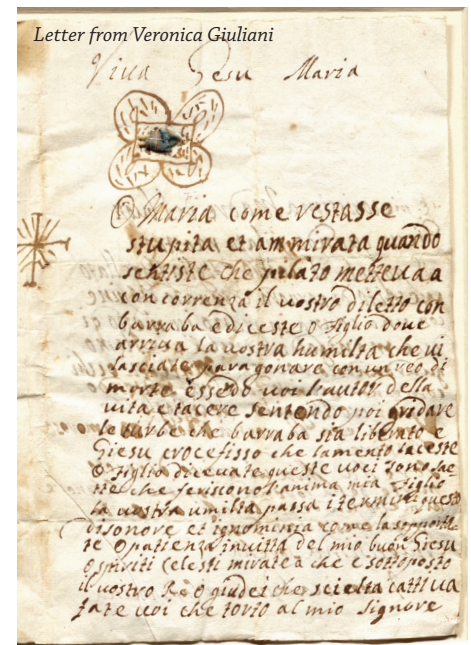 Letter from Veronica Giuliani
Viva Gesu Maria
O Maria come restasse
stupita et ammirata quando
sentiste che pilato metteva a
concorrenza il vostro diletto con
barraba e diceste o figlio dove
arriva la vostra humiltà che vi
lasciate paragonare con un reo di
morte essedo voi l'autor della
vita e tacere sentendo poi gridare
le turbe che barraba sia liberato e
Giesu crocefisso che lamento faceste
O figlio dicevate queste voci sono sae
tte che feriscono l'anima mia figlio
la vostra umilta passa i termini questo
disonore et ignominia come la supporta
te O patienza invitta del mio buon Giesu
O spiriti celesti mirate a che è sottoposto
il vostro Re O giudei che scielta cattiva
fate voi che torto al mio signore